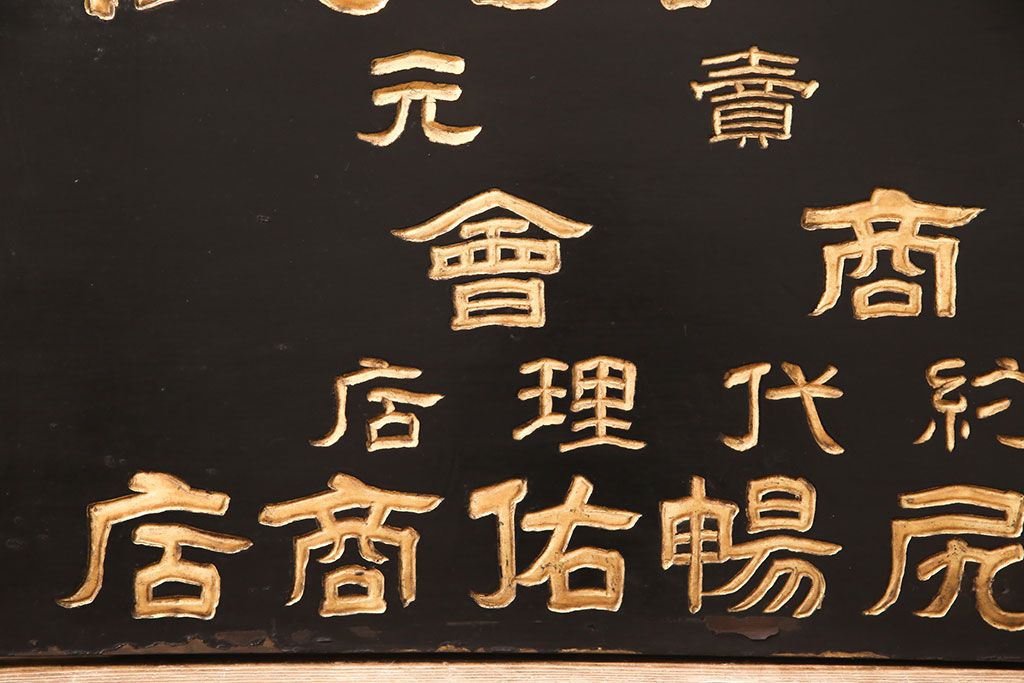 賣元
商會
約代理店
尻暢佑商店